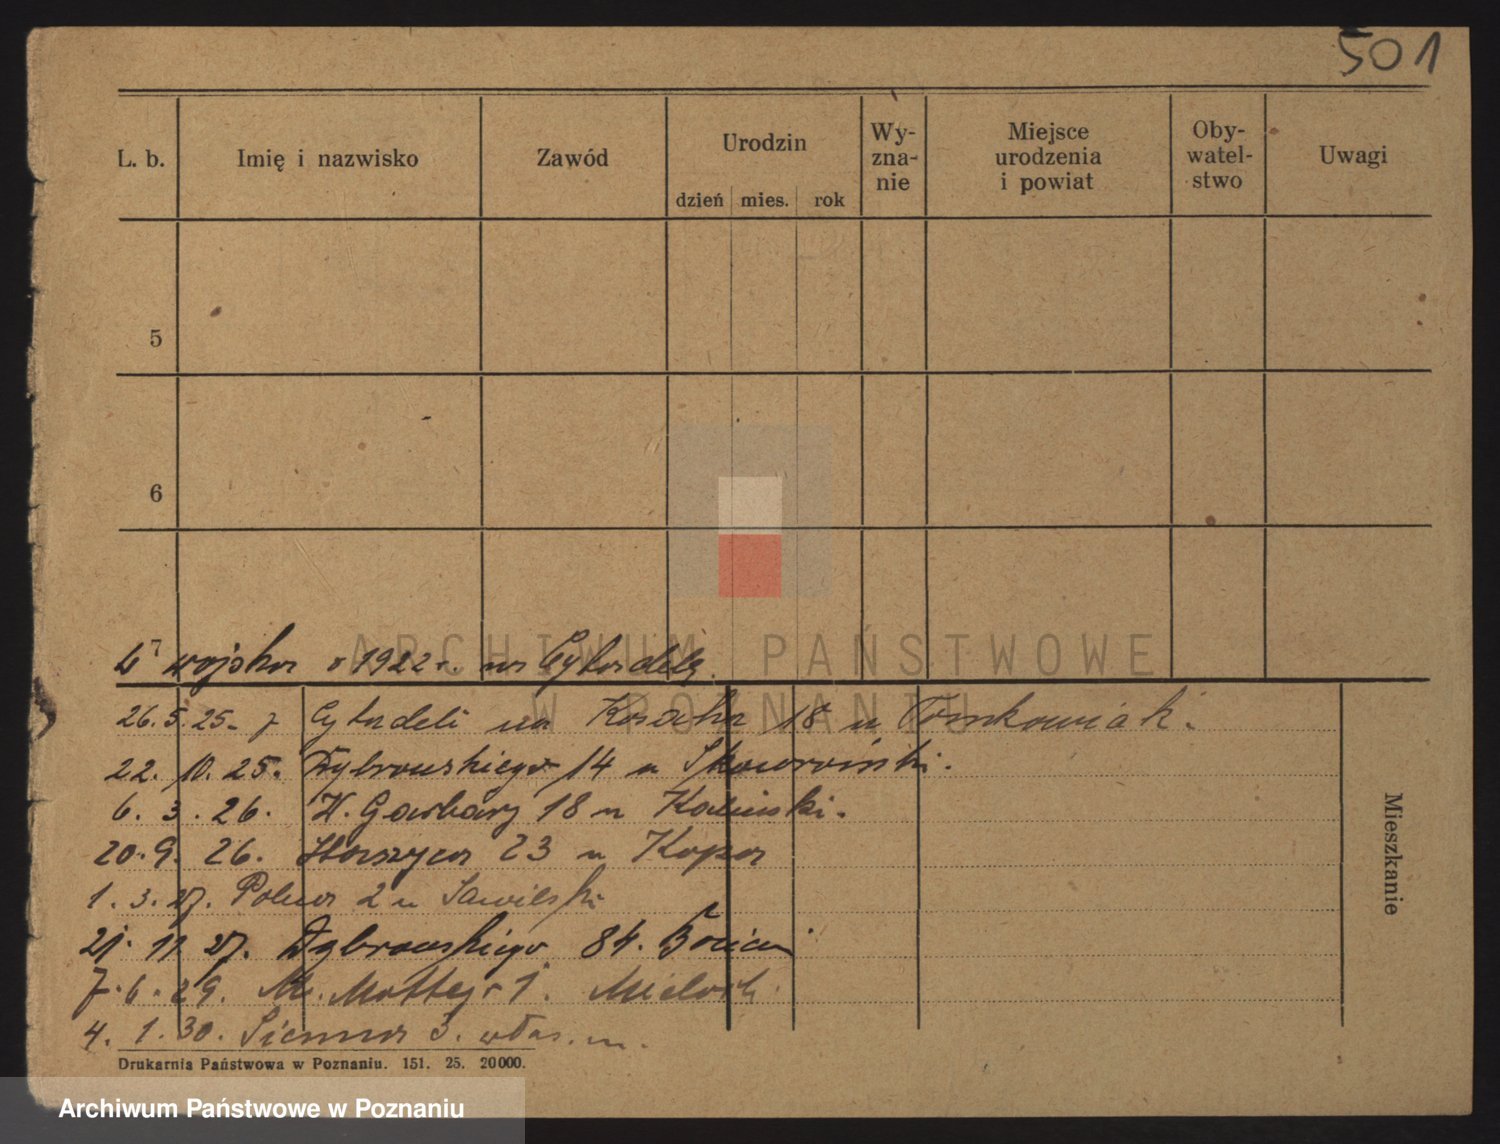 501
L. b. Imię i nazwisko Zawód Urodzin Wy-zna-nie Miejsce urodzenia i powiat Oby-watel-stwo Uwagi
dzień mies. rok
5
6
ARCHIWUM PAŃSTWOWE
W POZNANIU
wojska 1922 r. na Cytadelę.
26. 5. 25. z Cytadeli na Kosacha 18 u Tomkowiak.
22. 10. 25. Dąbrowskiego 14 u Skoworoński.
6. 3. 26. W. Garbary 18 u Kaliński.
20. 9. 26. Staszyca 23 u Kopa
1. 3. 27. Polna 2 u
21. 11. 27. Dąbrowskiego 84.
7. 6. 29. M. Mottego 1. Mieloch.
4. 1. 30. Sienna 3. włas. m.
Mieszkanie
Drukarnia Państwowa w Poznaniu. 151. 25. 20000.
Archiwum Państwowe w Poznaniu